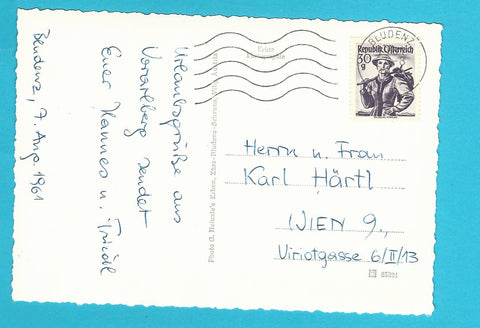 Bludenz, 7. Aug. 1961
Urlaubsgrüße aus
Vorarlberg sendet
Euer Hannes u. Friedl
Echte
Photographie
Photo G. Heinzle's Erben, Enzo-Bludenz-Schruns/Vlbg. Austria
BLUDENZ
Republik Österreich
30
g
Herrn u. Frau
Karl Härtl
WIEN 9.,
Viriotgasse 6/II/13
85324